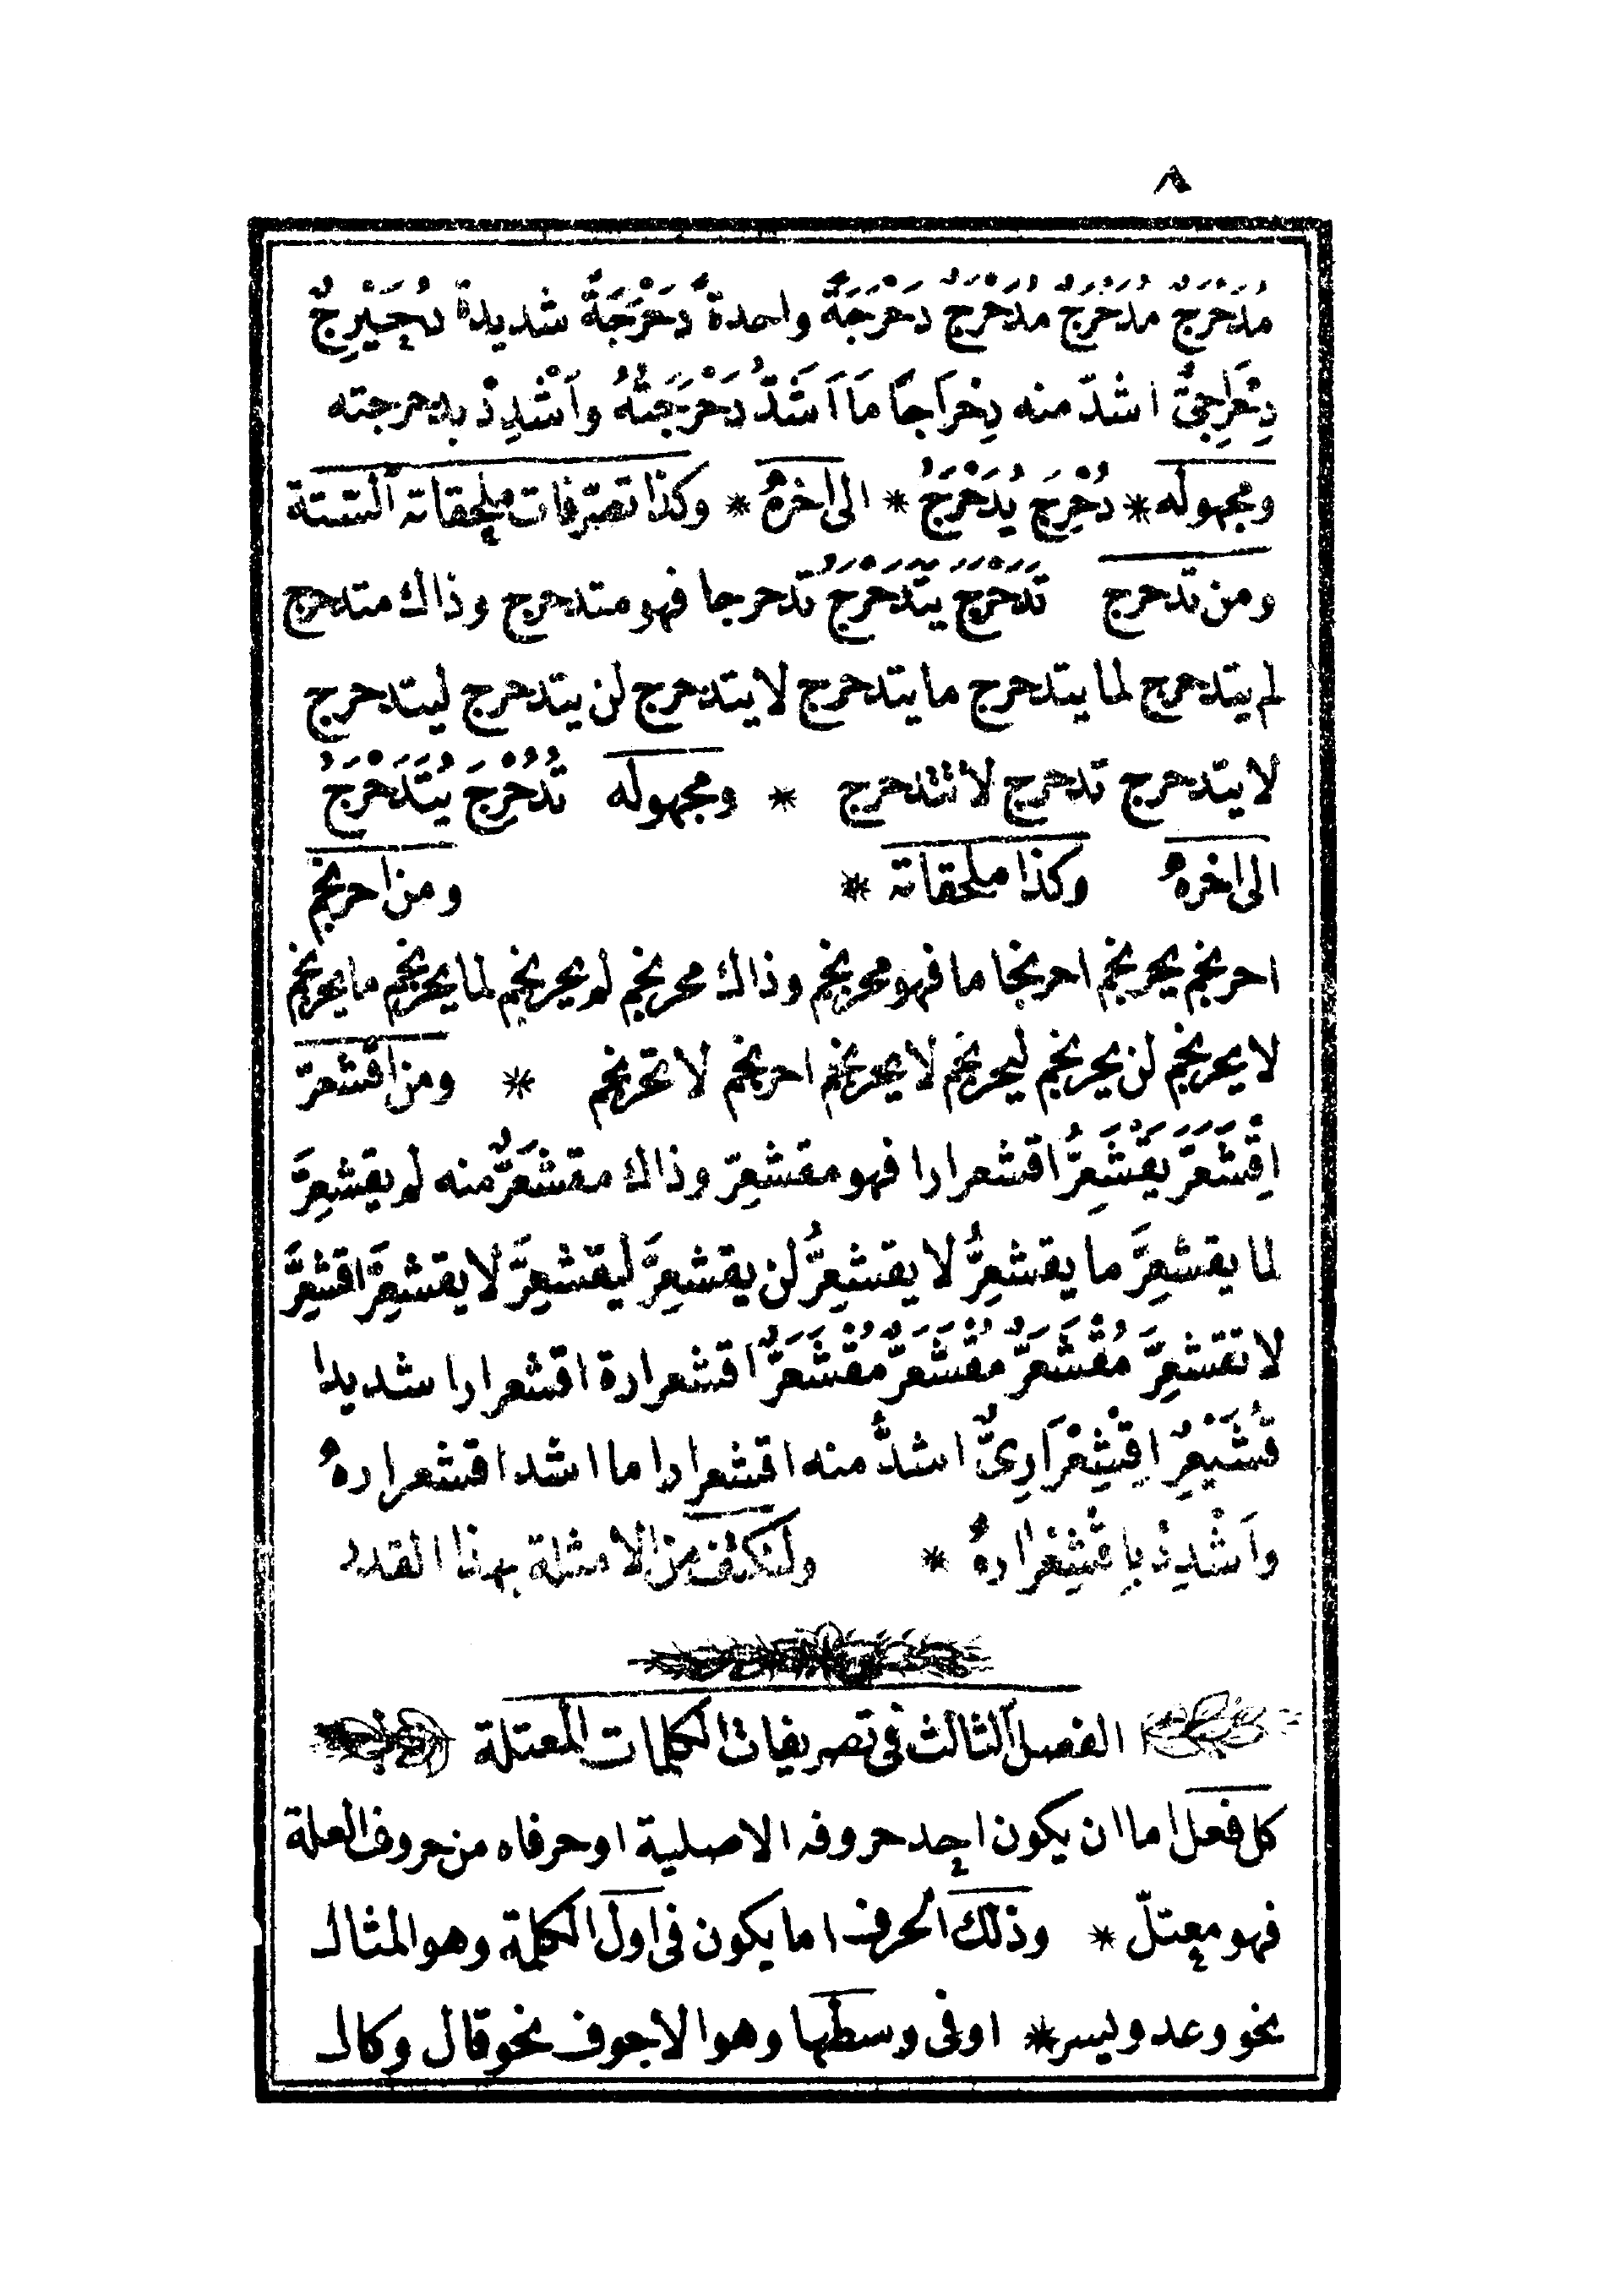 ٨
مُدَحْرَجٌ مُدَحْرَجٌ مُدَحْرَجٌ دَحْرَجَةً واحدةً دَحْرَجَةً شديدة دُحَيْرِجٌ
دِحْرَاجِىٌّ اشدّ منه دِحْرَاجًا مَا اَشَدَّ دَحْرَجَتَهُ وَاَشْدِدْ بدحرجته
ومجهوله * دُحْرِجَ يُدَحْرَجُ * الى اخرهُ * وكذا تصرّفات ملحقاته الستة
ومن تدحرج تَدَحْرَجَ يَتَدَحْرَجُ تدحرجا فهو متدحرج وذاك متدحرج
لم يتدحرج لما يتدحرج ما يتدحرج لا يتدحرج لن يتدحرج ليتدحرج
لا يتدحرج تدحرج لا تتدحرج * ومجهوله تُدُحْرِجَ يُتَدَحْرَجُ
الى اخرهُ وكذا ملحقاته * ومن احرنجم
احرنجم يحرنجم احرنجاما فهو محرنجم وذاك محرنجم لم يحرنجم لما يحرنجم ما يحرنجم
لا يحرنجم لن يحرنجم ليحرنجم لا يحرنجم احرنجم لا تحرنجم * ومن اقشعرّ
اِقْشَعَرَّ يَقْشَعِرُّ اقشعرارا فهو مقشعِرّ وذاك مقشعَرٌّ منه لم يقشعِرَّ
لما يقشعِرَّ ما يقشعِرُّ لا يقشعِرُّ لن يقشعِرَّ ليقشعِرَّ لا يقشعِرَّ اقشعِرَّ
لا تقشعِرَّ مُقْشَعَرٌّ مُقْشَعَرٌّ مُقْشَعَرٌّ اقشعرارة اقشعرارا شديدا
قُشَيْعِرٌ اِقْشِعْرَارِىٌّ اشدُّ منه اقشعرارا ما اشد اقشعرارهُ
وَاَشْدِدْ بِاقْشِعْرَارهُ * ولنكتف من الامثلة بهذا القدر
الفصل الثالث فى تصريفات الكلمات المعتلة
كل فعل اما ان يكون احد حروفه الاصلية او حرفاه من حروف العلة
فهو معتلّ * وذلك الحرف اما يكون فى اول الكلمة وهو المثال
نحو وعد ويسر * او فى وسطها وهو الاجوف نحو قال وكال